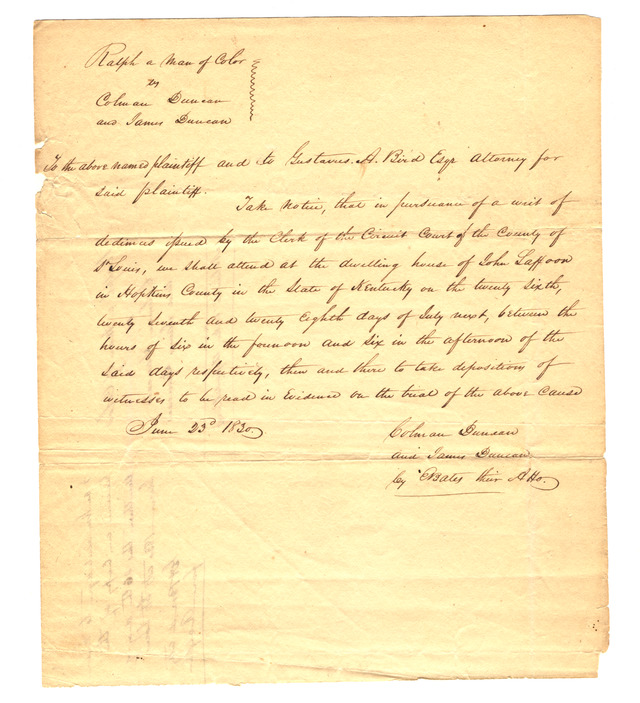 Ralph a Man of Color
vs
Colman Duncan
and James Duncan
To the above named plaintiff and to Gustavus. A. Bird Esqr attorney for
said plaintiff.
Take Notice, that in pursuance of a writ of
dedimus issued by the Clerk of the Circuit Court of the County of
St Louis, we shall attend at the dwelling house of John Laffoon
in Hopkins County in the State of Kentucky on the twenty sixth,
twenty seventh and twenty Eighth days of July next, between the
hours of six in the forenoon and six in the afternoon of the
said days respectively, then and there to take depositions of
witnesses to be read in Evidence on the trial of the above Cause
June 23d 1830.
Colman Duncan
and James Duncan
by Bates their Atto.